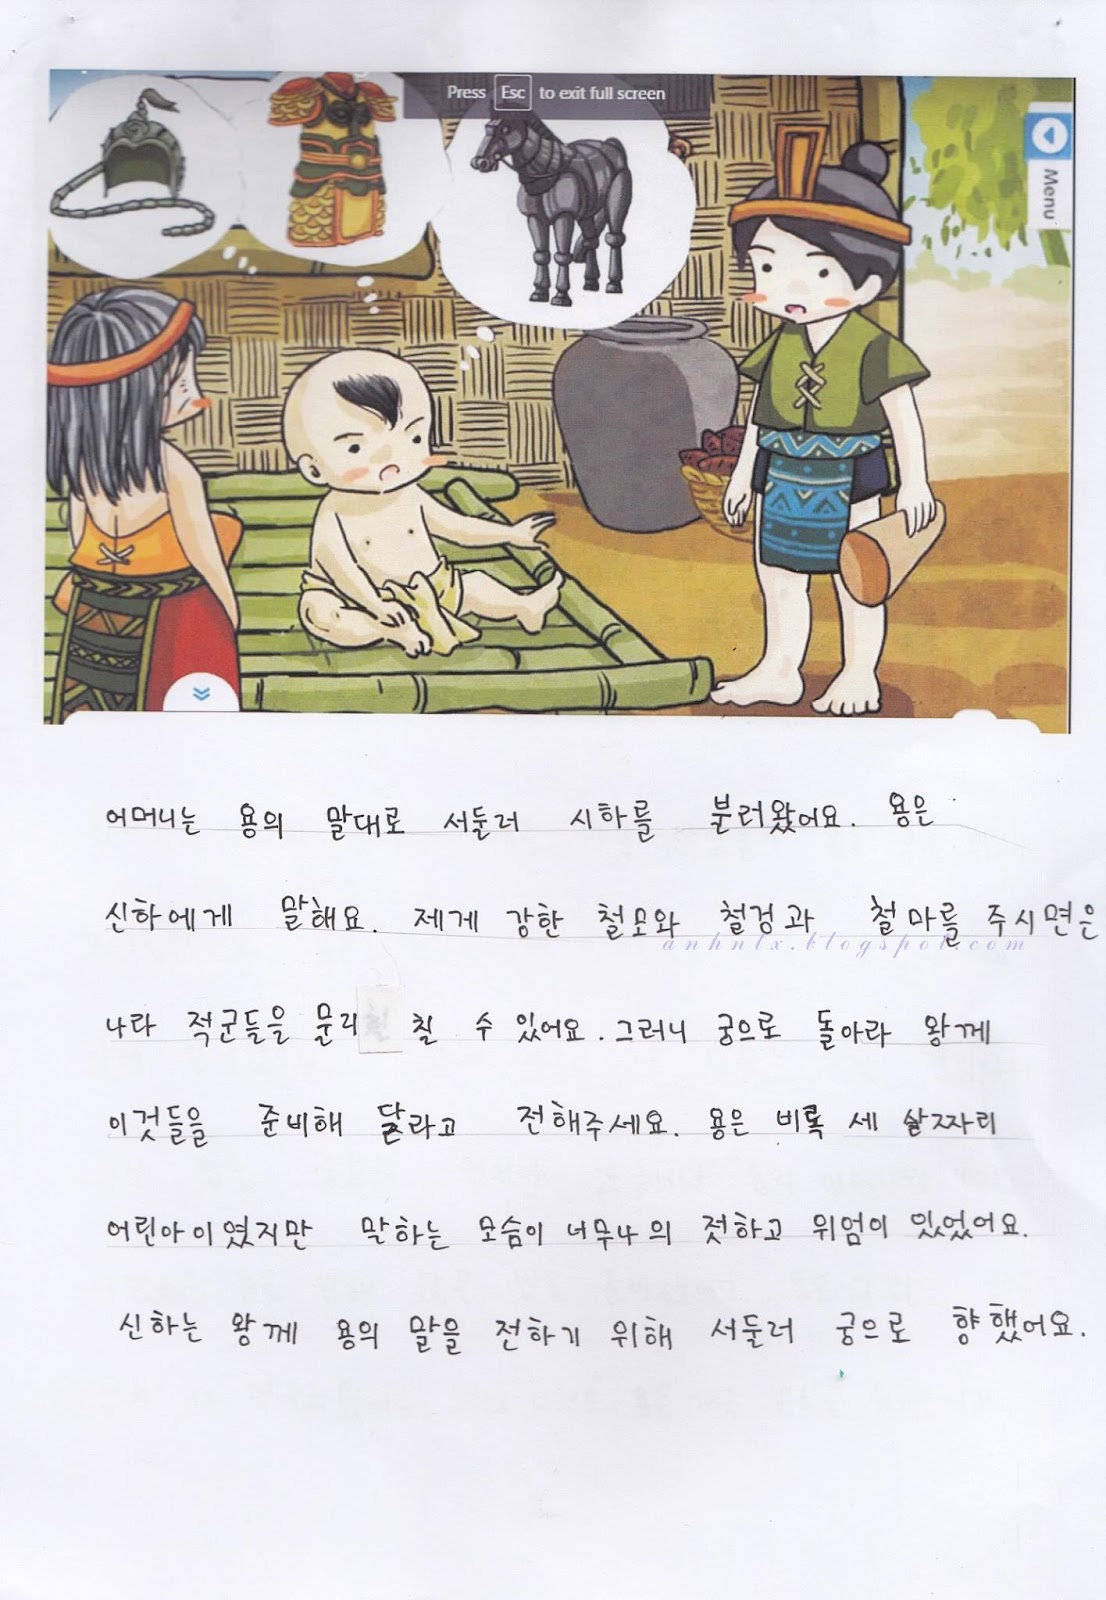 Press Esc to exit full screen
Menu
어머니는 용의 말대로 서둘러 시하를 불러왔어요. 용은
신하에게 말해요. 제게 강한 철모와 철검과 철마를 주시면은
anhnlx.blogspot.com
나라 적군들을 물리 칠 수 있어요. 그러니 궁으로 돌아라 왕께
이것들을 준비해 달라고 전해주세요. 용은 비록 세 살짜리
어린아이였지만 말하는 모습이 너무나 의젓하고 위엄이 있었어요.
신하는 왕께 용의 말을 전하기 위해 서둘러 궁으로 향했어요.